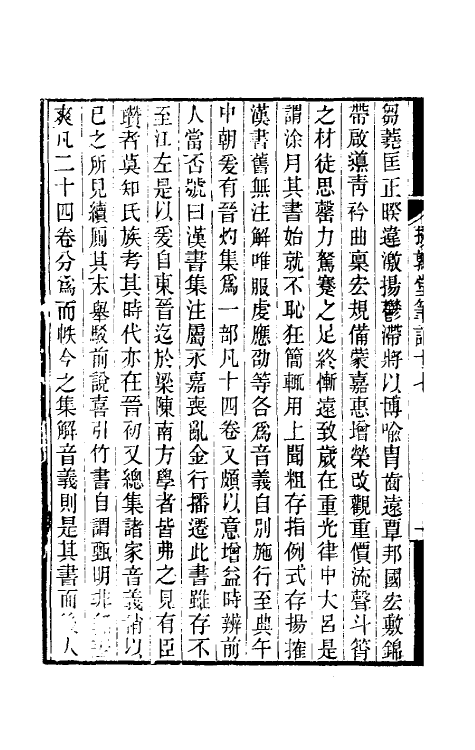 芻蕘匡正睽違激揚鬱滯將以博喻胄齒遠覃邦國宏敷錦
帶啟導青衿曲稟宏規備蒙嘉惠增榮改觀重價流聲斗筲
之材徒思罄力駑蹇之足終慚遠致歲在重光律中大呂是
謂涂月其書始就不恥狂簡輒用上聞粗存指例式存揚搉
漢書舊無注解唯服虔應劭等各爲音義自別施行至典午
中朝爰有晉灼集爲一部凡十四卷又頗以意增益時辨前
人當否號曰漢書集注屬永嘉喪亂金行播遷此書雖存不
至江左是以爰自東晉迄於梁陳南方學者皆弗之見有臣
瓚者莫知氏族考其時代亦在晉初又總集諸家音義稍以
己之所見續廁其末舉駁前說喜引竹書自謂甄明非
爽凡二十四卷分爲而帙今之集解音義則是其書而人